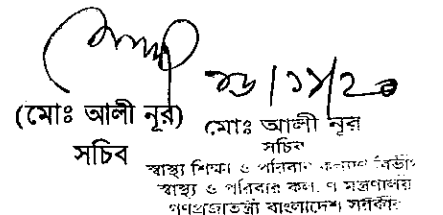 (মোঃ আলী নূর)
সচিব
মোঃ আলী নূর
সচিব
স্বাস্থ্য শিক্ষা ও পরিবার কল্যাণ বিভাগ
স্বাস্থ্য ও পরিবার কল্যাণ মন্ত্রণালয়
গণপ্রজাতন্ত্রী বাংলাদেশ সরকার